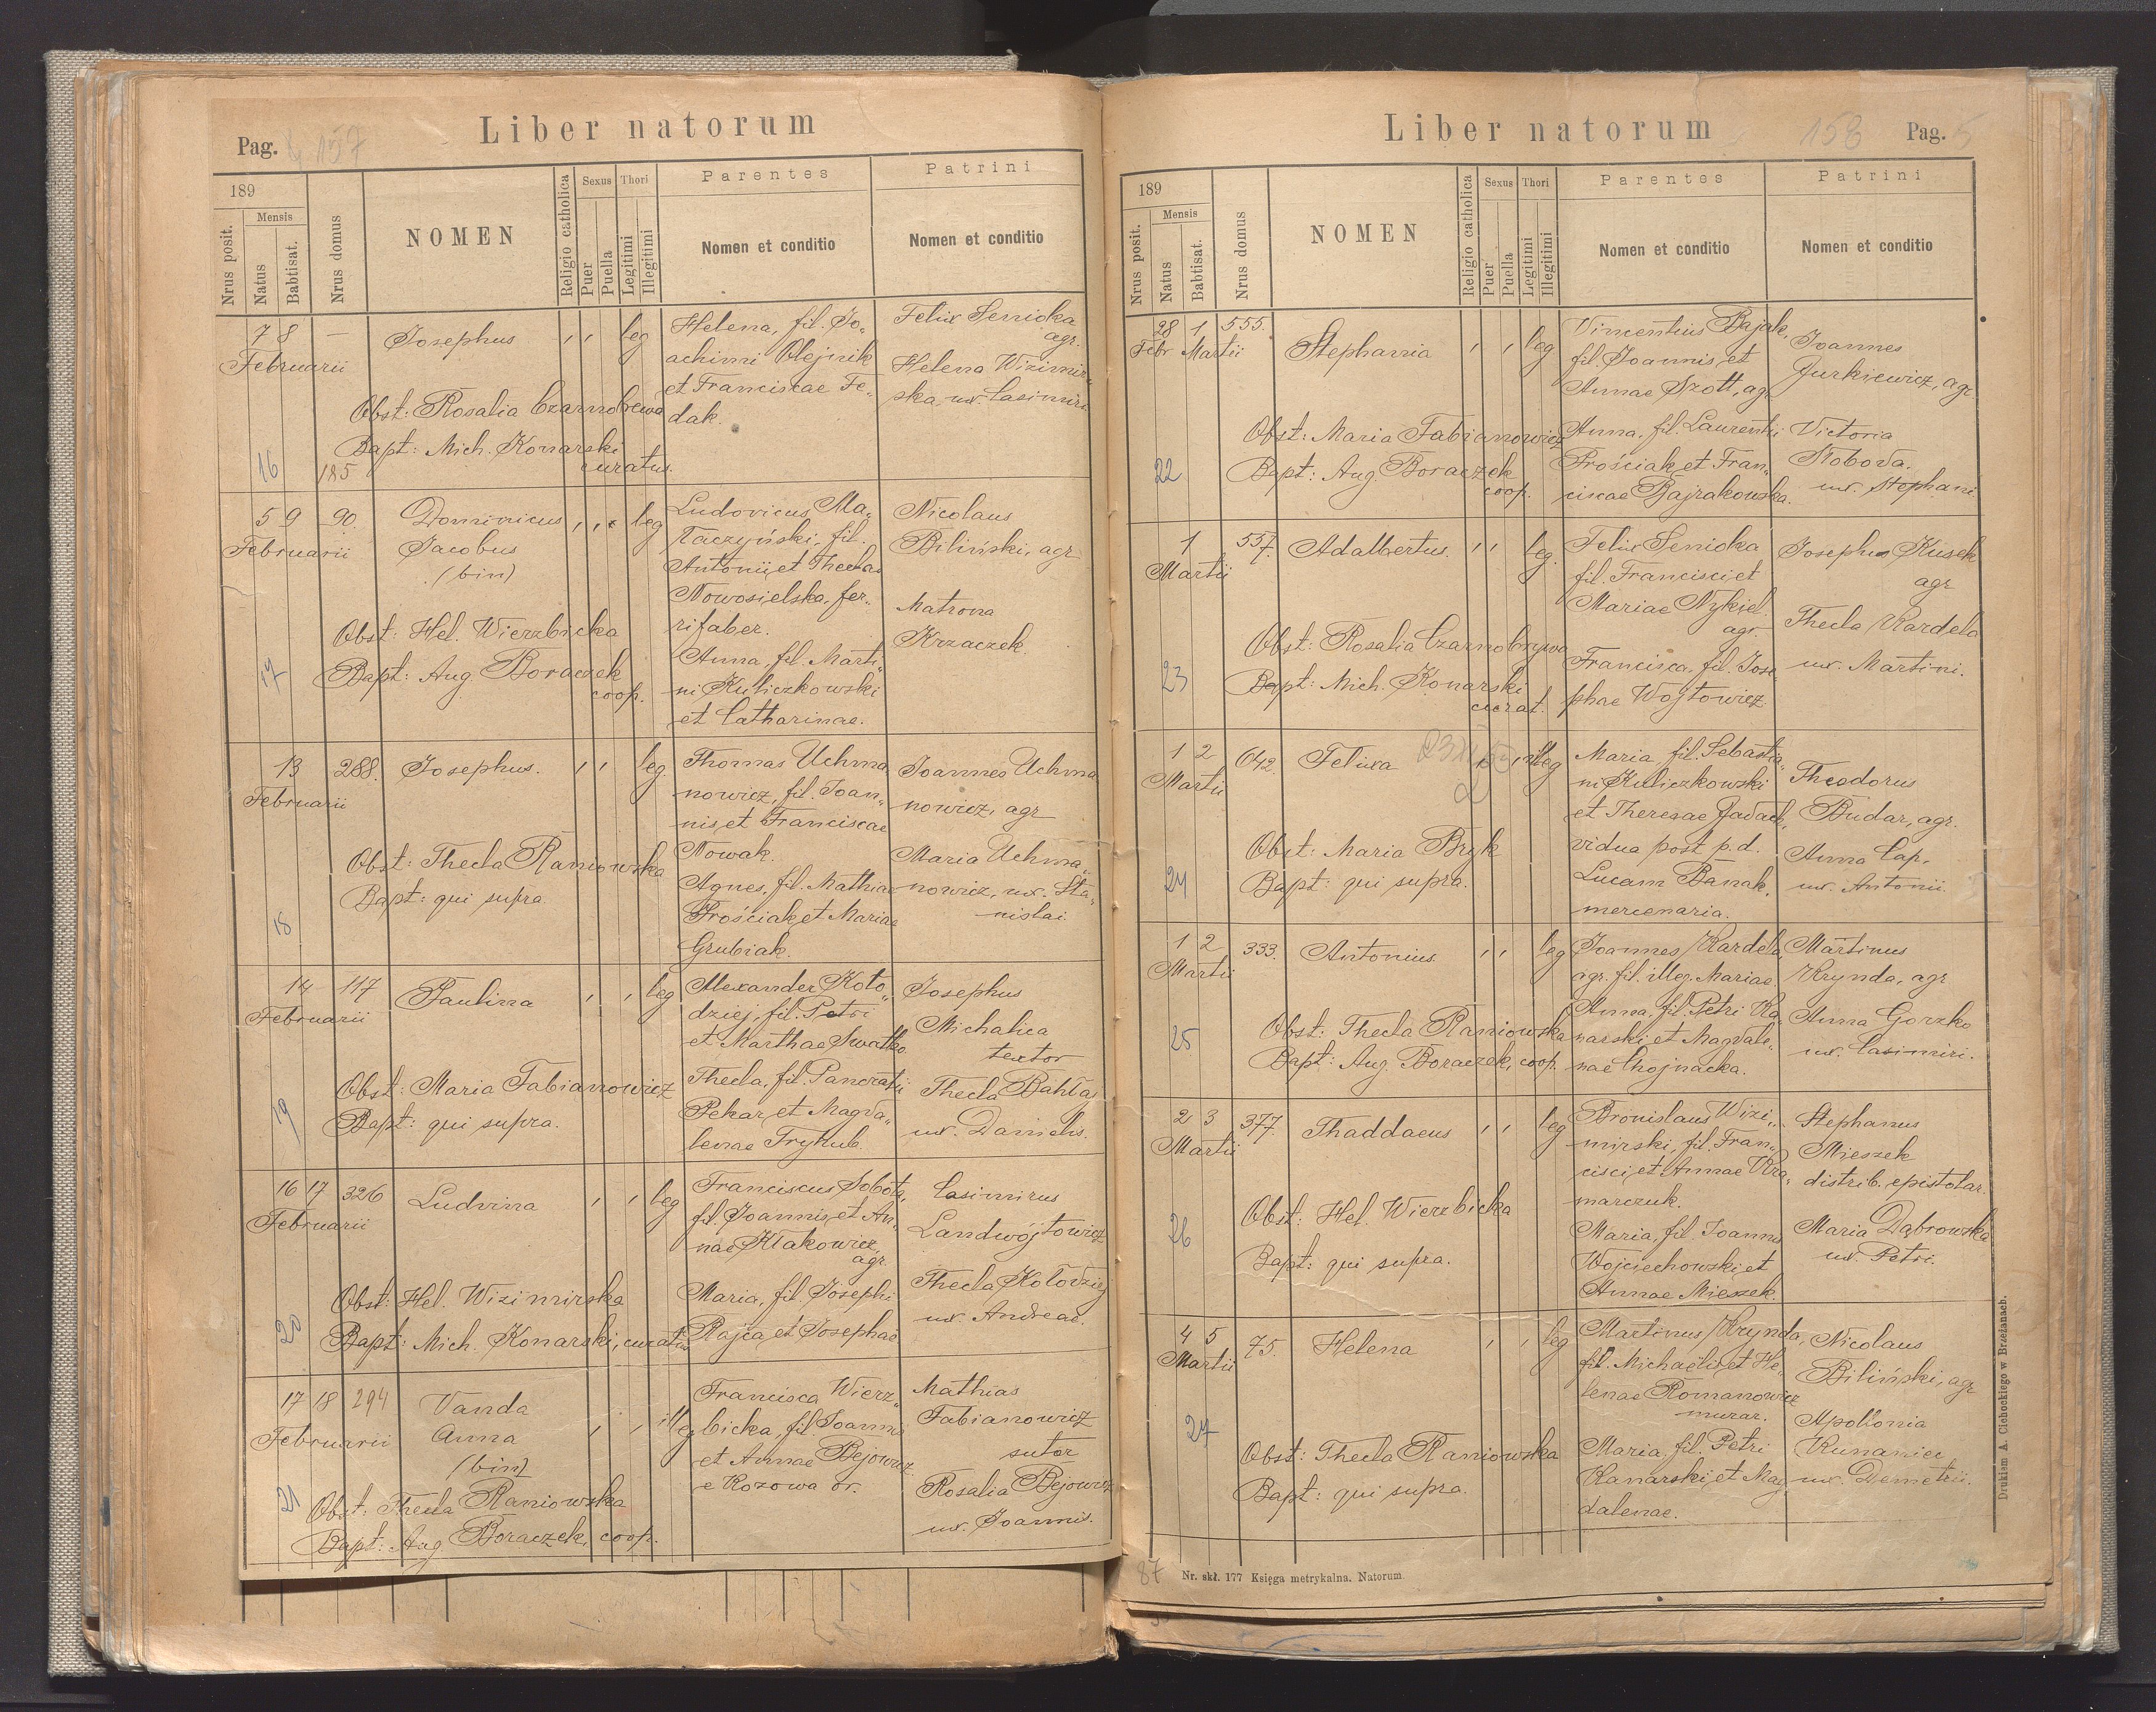 Pag. 157
Liber natorum
189
Mensis
Nrus posit.
Natus
Babtisat.
Nrus domus
NOMEN
Religio catholica
Sexus
Puer
Puella
Thori
Legitimi
Illegitimi
Parentes
Nomen et conditio
Patrini
Nomen et conditio
7 8 —
Februarii
Josephus
leg
Helena, fil. Jo„
achimi Olejnik
et Franciscae Fe„
dak.
Felix Senicka
agr.
Helena Wizimir
ska ux. Casimiri
Obst: Rosalia Czarnobrewa
Bapt: Mich. Konarski
curatus.
16 185
5 9 90.
Februarii
Dominicus
Jacobus
(bin)
leg
Ludovicus Ma„
Kaczyński, fil.
Antonii et Theclae
Nowosielska, fer„
rifaber.
Anna, fil. Marti„
ni Kuliczkowski
et Catharinae.
Nicolaus
Biliński, agr
Matrona
Krzaczek.
Obst: Hel. Wierzbicka
Bapt: Aug. Boraczek
coop.
17
13 288.
Februarii
Josephus.
leg.
Thomas Uchma
nowicz, fil. Joan„
nis et Franciscae
Nowak.
Agnes, fil. Mathiae
Prościak et Mariae
Grubiak.
Joannes Uchma
nowicz, agr
Maria Uchma„
nowicz, ux. Sta„
nislai.
Obst: Thecla Raniowska
Bapt: qui supra.
18
14 117
Februarii
Paulina
leg
Alexander Koło„
dziej, fil. Petri
et Marthae Swatko
Thecla, fil. Pancratii
Pekar et Magda„
lenae Tryhub.
Josephus
Michalica
textor
Thecla Bahłaj
ux. Danielis.
Obst: Maria Fabianowicz
Bapt: qui supra.
19
16 17 326
Februarii
Ludvina
leg
Franciscus Sobota,
fil. Joannis et An„
nae Kłakowicz,
agr.
Maria, fil. Josephi
Rajca et Josephae
Casimirus
Landwójtowicz
Thecla Kołodziej
ux. Andreae.
Obst: Hel. Wizimirska
Bapt: Mich. Konarski, curatus
20
17 18 294
Februarii
Vanda
Anna
(bin)
illeg
Francisca Wierz„
bicka, fil. Joannis
et Annae Bejowicz
e Kozowa or.
Mathias
Fabianowicz
sutor
Rosalia Bejowicz
ux. Joannis.
Obst: Thecla Raniowska
Bapt: Aug Boraczek, coop.
21
Liber natorum
158 Pag. 5
189
Mensis
Nrus posit.
Natus
Babtisat.
Nrus domus
NOMEN
Religio catholica
Sexus
Puer
Puella
Thori
Legitimi
Illegitimi
Parentes
Nomen et conditio
Patrini
Nomen et conditio
28 1 555.
Febr Martii
Stephania
leg
Vincentius Bajak,
fil. Joannis et
Annae Szott, agr.
Anna, fil. Laurentii
Prościak et Fran„
ciscae Bajrakowska.
Joannes
Jurkiewicz, agr
Victoria
Słoboda.
ux. Stephani
Obst: Maria Fabianowicz
Bapt: Aug. Boraczek
coop.
22
1 557.
Martii
Adalbertus.
leg.
Felix Senicka
fil. Francisci et
Mariae Nykiel.
agr.
Francisca, fil. Jose
phae Wojtowicz.
Josephus Kusek
agr
Thecla Kardela
ux. Martini.
Obst: Rosalia Czarnobrywa
Bapt: Mich. Konarski
curat.
23
1 2 642.
Martii
Felixa
illeg
Maria, fil. Sebastia„
ni Kuliczkowski
et Theresae Gadach,
vidua post p.d.
Lucam Banak,
mercenaria.
Theodorus
Budar, agr.
Anna Cap,
ux. Antonii.
Obst: Maria Bryk
Bapt: qui supra.
24
1 2 333.
Martii
Antonius.
leg
Joannes Kardela,
agr. fil. illeg. Mariae.
Anna, fil. Petri Ka„
narski et Magdale„
nae Chojnacka.
Martinus
Krynda, agr
Anna Gorzko
ux. Casimiri.
Obst: Thecla Raniowska
Bapt: Aug. Boraczek, coop.
25
2 3 377.
Martii
Thaddaeus
leg
Bronislaus Wizi„
mirski, fil. Fran„
cisci, et Annae Kra„
marczuk.
Maria, fil. Joannis
Wojciechowski, et
Annae Mieszek.
Stephanus
Mieszek
distrib. epistolar.
Maria Dąbrowska
ux. Petri.
Obst: Hel. Wierzbicka
Bapt: qui supra.
26
4 5 75.
Martii
Helena
leg
Martinus Krynda,
fil. Michaëlis et He„
lenae Romanowicz
murar.
Maria, fil. Petri
Kanarski, et Mag
dalenae.
Nicolaus
Biliński, agr
Apollonia
Kunaniec
ux. Demetrii.
Obst: Thecla Raniowska
Bapt: qui supra.
27
87
Nr. skł. 177 Księga metrykalna. Natorum
Drukiem A. Cichockiego w Brzeżanach.